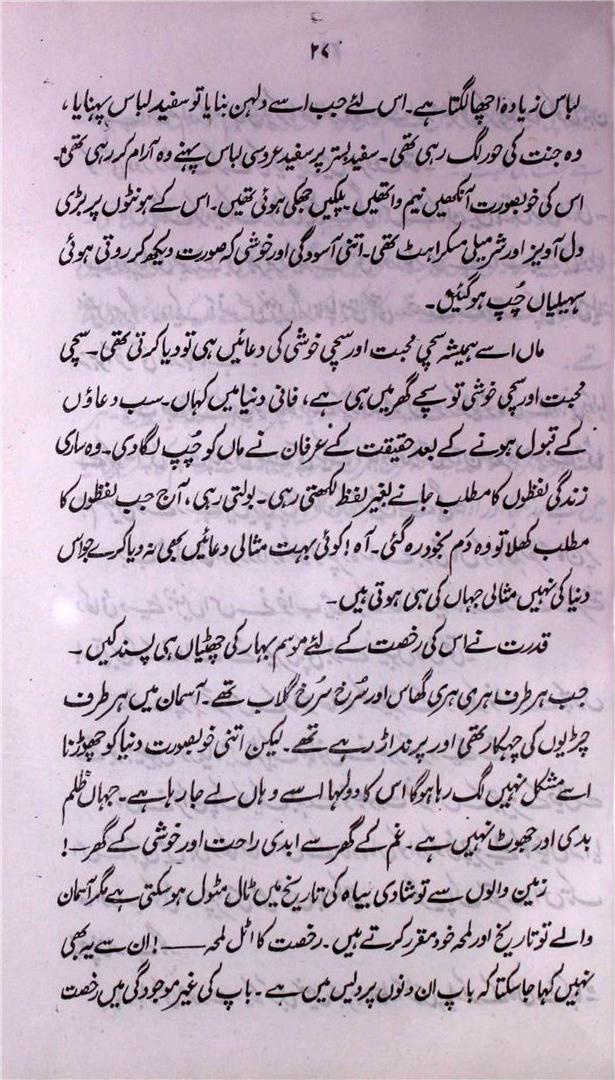 ۲۷
لباس زیادہ اچھا لگتا ہے۔ اس لئے جب اسے دلہن بنایا تو سفید لباس پہنایا،
وہ جنت کی حور لگ رہی تھی۔ سفید بستر پر سفید عروسی لباس پہنے وہ آرام کر رہی تھی۔
اس کی خوبصورت آنکھیں نیم وا تھیں۔ پلکیں جھکی ہوئی تھیں۔ اس کے ہونٹوں پر بڑی
دل آویز اور شرمیلی مسکراہٹ تھی۔ اتنی آسودگی اور خوشی کہ صورت دیکھ کر روتی ہوئی
سہیلیاں چُپ ہو گیئں۔
ماں اسے ہمیشہ سچی محبت اور سچی خوشی کی دعائیں ہی تو دیا کرتی تھی۔ سچی
محبت اور سچی خوشی تو سچے گھر میں ہی ہے، فانی دنیا میں کہاں۔ سب دعاؤں
کے قبول ہونے کے بعد حقیقت کے عرفان نے ماں کو چُپ لگا دی۔ وہ ساری
زندگی لفظوں کا مطلب جانے بغیر لفظ لکھتی رہی۔ بولتی رہی، آج جب لفظوں کا
مطلب کھلا تو وہ دَم بخود رہ گئی۔ آہ! کوئی بہت مثالی دعائیں بھی نہ دیا کرے جو اس
دنیا کی نہیں مثالی جہاں کی ہی ہوتی ہیں۔
قدرت نے اس کی رخصت کے لئے موسم بہار کی چھٹیاں ہی پسند کیں۔
جب ہر طرف ہری ہری گھاس اور سُرخ سُرخ گلاب تھے۔ آسمان میں ہر طرف
چڑیوں کی چہکار تھی اور پرند اڑ رہے تھے۔ لیکن اتنی خوبصورت دنیا کو چھوڑنا
اسے مشکل نہیں لگ رہا ہوگا اس کا دولہا اسے وہاں لے جا رہا ہے۔ جہاں ظلم
بدی اور جھوٹ نہیں ہے۔ غم کے گھر سے ابدی راحت اور خوشی کے گھر—!
زمین والوں سے تو شادی بیاہ کی تاریخ میں ٹال مٹول ہو سکتی ہے مگر آسمان
والے تو تاریخ اور لمحہ خود مقرر کرتے ہیں۔ رخصت کا اٹل لمحہ——! ان سے یہ بھی
نہیں کہا جا سکتا کہ باپ ان دنوں پردیس میں ہے۔ باپ کی غیر موجودگی میں رخصت